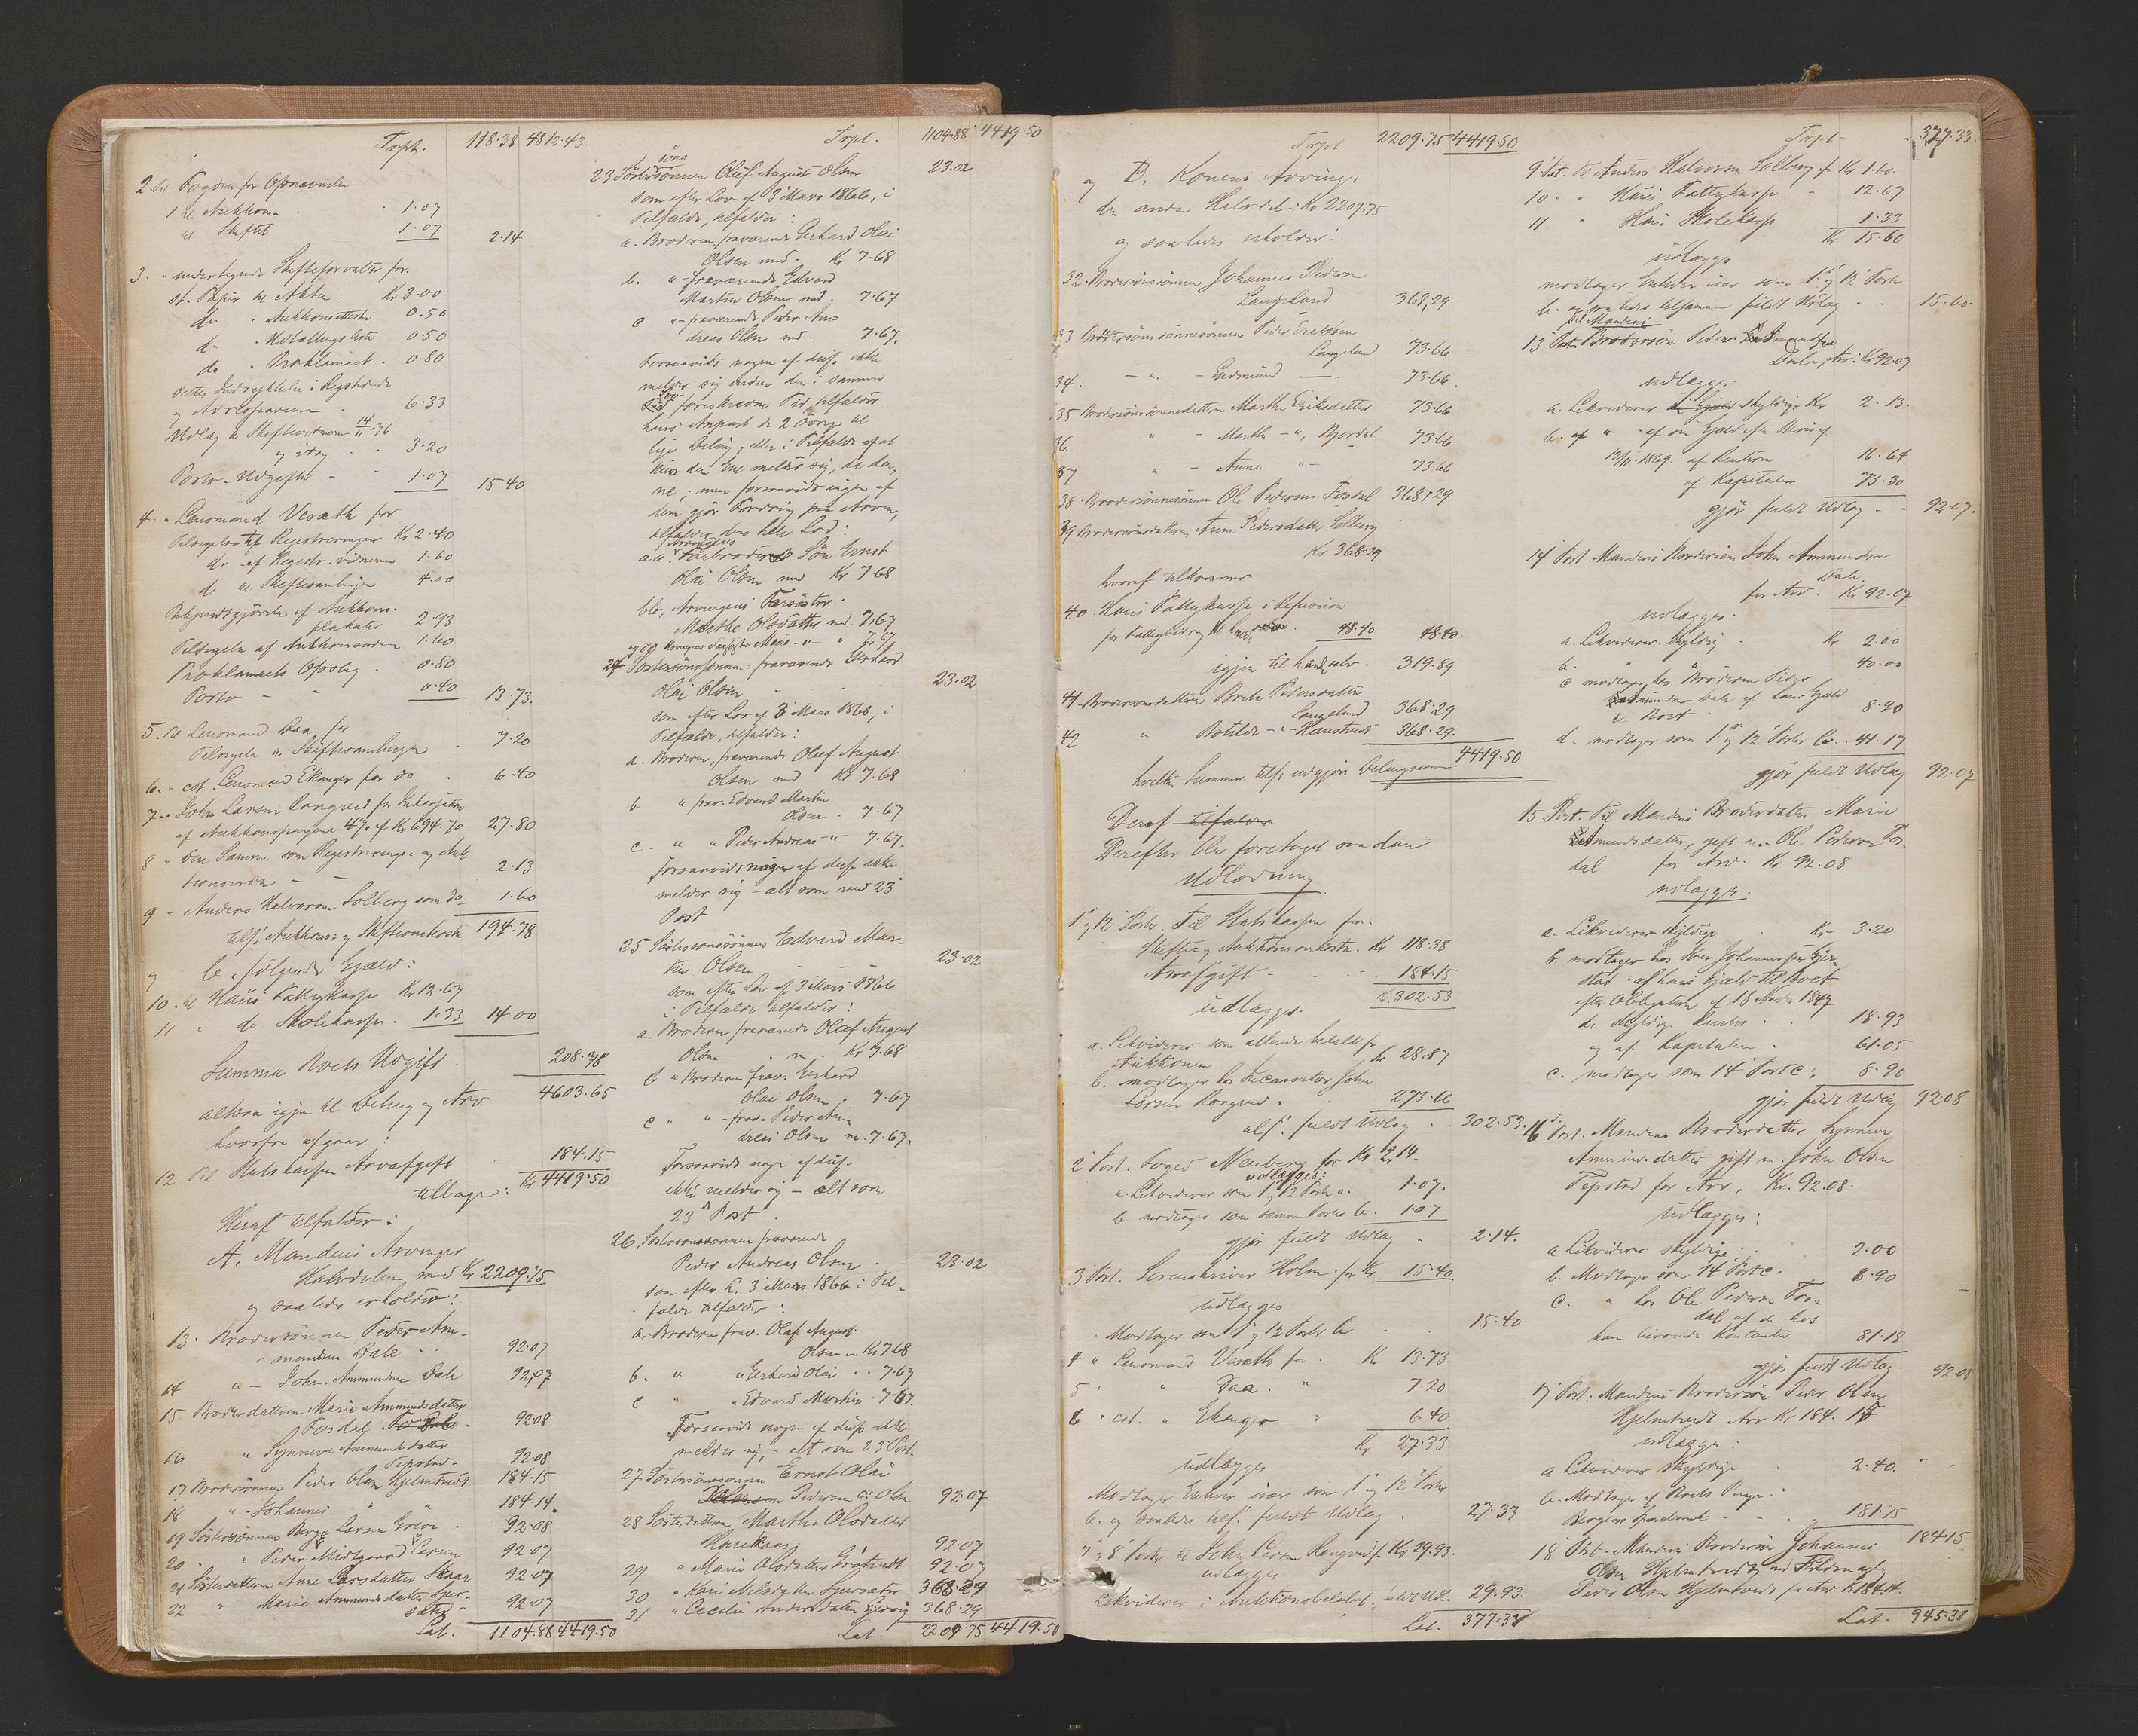 Trpt. 118.38 4812.43.
2. til Fogden for Opnævnelse
1 til Auktion 1.07
til Skiftet 1.07 2.14
3. " undertegnede Skifteforvalter for
st. Papir til Akten. Kr 3.00
do " Auktionsattesten 0.50
d. " Udlodningsakten 0.50
do " Proklamaet. 0.80
dettes Indrykkelse i Rigstidende
og Adresseavisen 6.33
Udlæg til Skiftevidnerne 14/11 76
og idag 3.20
Porto-Udgifter 1.07 15.40
4. " Lensmand Vesæth for
Tilsigelse af Registreringen Kr 2.40
do af Registr. vidnerne 1.60
do til Skiftesamlinger 4.00
Bekjendtgjørelse af Auktions-
plakater 2.93
Tilsigelse af Auktionsvidne 1.60
Proklamaets Opslag 0.80
Porto 0.40 13.73.
5. Til Lensmand Daa for
Tilsigelse til Skiftesamlinger 7.20
6. " cst. Lensmand Ekanger for do 6.40
7. " John Larsen Rongved for Inkassation
af Auktionspengene 4% af Kr 694.70 27.80
8 " Den Samme som Registrerings- og Auk-
tionsvidne 2.13
9 " Anders Halvorsen Solberg som do 1.60
tils. Auktions- og Skifteomkostn. 194.78
og b. følgende Gjæld:
10. til Haus Fattigkasse Kr 12.67
11 " do Skolekasse. 1.33 14.00
Summa Boets Udgift. 208.78
altsaa igjen til Deling og Arv 4603.65
hvorfra afgaar:
12 Til Statskassen Arveafgift 184.15
tilbage: Kr 4419.50
Heraf tilfalder:
A. Mandens Arvinger
Halvdelen, med Kr 2209.75
og saaledes erholder:
13. Brodersønnen Peder Am-
mundsen Dale 92.07
14 " - John Ammundsen Dale 92.07
15 Broderdatteren Marie Ammundsdatter
Fosdal 92.08
16 " Synneve Ammundsdatter
Tepstad 92.08
17 Brodersønnen Peder Olsen Hjelmtvedt 184.15
18 " Johannes " " 184.14.
19 Søstersønnen Berge Larsen 92.08
20 " Peder Midtgaard Larsen 92.07
21 Søsterdatteren Anne Larsdatter 92.07
22 " Marie Ammundsdatter
92.07
Lat. 1104.88 4419.50
Trpt. 1104.88 4419.50
23 Søstersøns
sønnen Oluf August Olsen. 23.02
som efter Lov af 3 Mars 1866, i
Tilfælde, tilfalder:
a. Broderen, fraværende Gerhard Olai
Olsen med. Kr 7.68
b. " - fraværende Edvard
Martin Olsen med. 7.67
c " - fraværende Peder An-
dreas Olsen med. 7.67.
Forsaavidt nogen af disse ikke
melder sig inden den i samme
Lov foreskrevne Tid, tilfalder
hans Anpart de 2 øvrige til
lige Deling, eller i Tilfælde af at
kun den Ene melder sig, da den-
ne; men forsaavidt ingen af
dem gjør Fordring paa Arven,
tilfalder den hele Lod:
aa. Arvingens Farbroders Søn Ernst
Olai Olsen med Kr 7.68
bb, Arvingens Farsøster
Marthe Olsdatter md. 7.67
og cc Arvingens Farsøster Marie - " - " 7.67
24 Søstersønssønnen: fraværende Gerhard
Olai Olsen 23.02
som efter Lov af 3 Mars 1866, i
Tilfælde, tilfalder:
a. Broderen, fraværende Oluf August
Olsen med Kr 7.68
b " frav. Edvard Martin
Olsen . 7.67
c. " " Peder Andreas - " - 7.67.
Forsaavidt nogen af disse ikke
melder sig - alt som ved 23
Post
25 Søstersønssønnen Edvard Mar-
tin Olsen 23.02
som efter Lov af 3 Mars 1866
i Tilfælde tilfalder:
a. Broderen fraværende Oluf August
Olsen m. Kr 7.68
b " Broderen frav. Gerhard
Olai Olsen . 7.67
c " " - frav. Peder An-
dreas Olsen m. 7.67.
Forsaavidt nogen af disse
ikke melder sig - alt som
23 Post.
26. Søstersønssønnen fraværende
Peder Andreas Olsen 23.02
som efter L. 3 Mars 1866 i Til-
fælde tilfalder:
a. Broderen frav. Oluf August
Olsen m Kr 7.68
b. " " Gerhard Olai . . 7.67
c " " Edvard Martin . 7.67.
Forsaavidt nogen af disse ikke
melder sig, - alt som 23 Post.
27. Søstersønssønnen Ernst Olai
Pedersen c: Olsen 92.07
28 Søsterdatteren Marthe Olsdatter
92.07
29 " Marie Olsdatter 92.07
30 " Kari Nilsdatter 368.29
31 " Cecilie Andersdatter 368.29
Lat. 2209.75 4419.50
Trpt. 2209.75 4419.50
og B. Konens Arvinger
den anden Halvdel: Kr 2209.75
og saaledes erholder:
32. Brodersønssønnen Johannes Pedersen
Langeland 368,29
33 Brodersønssønnesønnen Peder Eriksen
Langeland 73.66
34. - " - Gudmund — 73.66.
35 Brodersønssønnedatteren Marthe Eriksdatter 73.66
36 " - Marthe - ", Bjordal 73.66
37 " - Anne " - 73.66
38. Brodersønnesønnen Ole Pedersen Fosdal 368.29
39 Brodersønsdatteren Anne Pedersdatter Solberg
Kr 368.29
hvoraf tilkommer
40. Haus Fattigkasse i Refusion
for Fattigbidrag til hende. 48.40 48.40
igjen til hende selv. 319.89
41. Brodersønsdatteren Brite Pedersdatter
Langeland 368.29
42 " Botilde - " - Haustvedt 368.29.
hvilke Summer tils. udgjøre Delingssummen 4419.50
Deraf tilfalder
Derefter blev foretaget saadan
Udlodning
1 og 12 Poster. Til Statskassen for:
Skifte og Auktionsomkostn. Kr 118.38
Arveafgift 184.15
Kr. 302.53
udlægges.
a. Likviderer som allerede betalt for
Auktionen Kr 28.87
b. modtager hos Incassator John
Larsen Rongved 273.66
tils. fuldt Udlæg . . 302.53.
2 Post. Foged Neuberg for Kr. 2.14
udlægges:
a. Likviderer som 1 og 12 Poster a. 1.07.
b modtager som samme Poster b. 1.07
gjør fuldt Udlæg . 2.14.
3 Post. Sorenskriver Holm for Kr. 15.40
udlægges
Modtager som 1 og 12 Poster b 15.40
4 " Lensmand Vesæth for. Kr 13.73.
5 " " Daa. " 7.20
6 " cst. " Ekanger " 6.40
Kr 27.33
udlægges
Modtager Enhver især som 1 og 12 Poster
b. og saaledes tils. fuldt Udlæg . 27.33
7 og 8 Poster til John Larsen Rongved for Kr 29.93.
udlægges
Likviderer i Auktionsbeløbet, fuldt Udl. 29.93
Lat. 377.33
Trpt. 377.33.
9 Post. til Anders Halvorsen Solberg for Kr 1.60.
10 " " Haus Fattigkasse " 12.67
11 " Haus Skolekasse 1.33
Kr. 15.60
udlægges
modtager Enhver især som 1 og 12 Poster
b. og saaledes tilsammen fuldt Udlæg . . 15.60.
13 Post. Til Mandens Brodersøn Peder Ammundsen
Dale, Arv: Kr 92.07
udlægges.
a. Likviderer skyldige Kr 2.13.
b. af " - af sin Gjæld efter Bevis af
12/11.1869. af Renterne 16.64
af Kapitalen 73.30
gjør fuldt Udlæg . . 92.07.
14 Post. Mandens Brodersøn John Ammundsen
Dale,
for Arv. Kr 92.07
udlægges.
a. Likviderer. Skyldig Kr 2.00
b. " " 40.00
c modtager hos Broderen Peder
Ammundsen Dale af hans Gjæld
til Boet 8.90
d. modtager som 1 og 12 Poster b. 41.17
gjør fuldt Udlæg 92.07
15 Post. Til Mandens Broderdatter Marie
Ammundsdatter, gift m. Ole Pedersen Fos-
dal for Arv. Kr 92.08
udlægges.
a. Likviderer skyldige Kr. 3.20
b. modtager hos Iver Johannessen
stad . af hans Gjæld til Boet
efter Obligation af 18 1847
de skyldige Renter . 18.93
og af Kapitalen . 61.05
c. modtager som 14 Post c. 8.90
gjør fuldt Udlæg 92.08
16 Post. Mandens Broderdatter Synneve
Ammundsdatter gift m. John Olsen
Tepstad for Arv. Kr. 92.08.
udlægges:
a Likviderer skyldige 2.00
b. Modtager som 14 Post c. 8.90
c. " hos Ole Pedersen Fos-
dal af de hos
ham beroende Kontanter 81.18
gjør fuldt Udlæg. 92.08
17 Post. Mandens Brodersøn Peder Olsen
Hjelmtvedt Arv Kr 184.15
udlægges:
a Likviderer skyldige 2.40.
b. Modtager af Boets Penge i
Bergens Sparebank 181.75
184.15
18 Post. Mandens Brodersøn Johannes
Olsen Hjelmtvedt
Peder Olsen Hjelmtvedt for Arv Kr 184.14.
Lat. 945.38